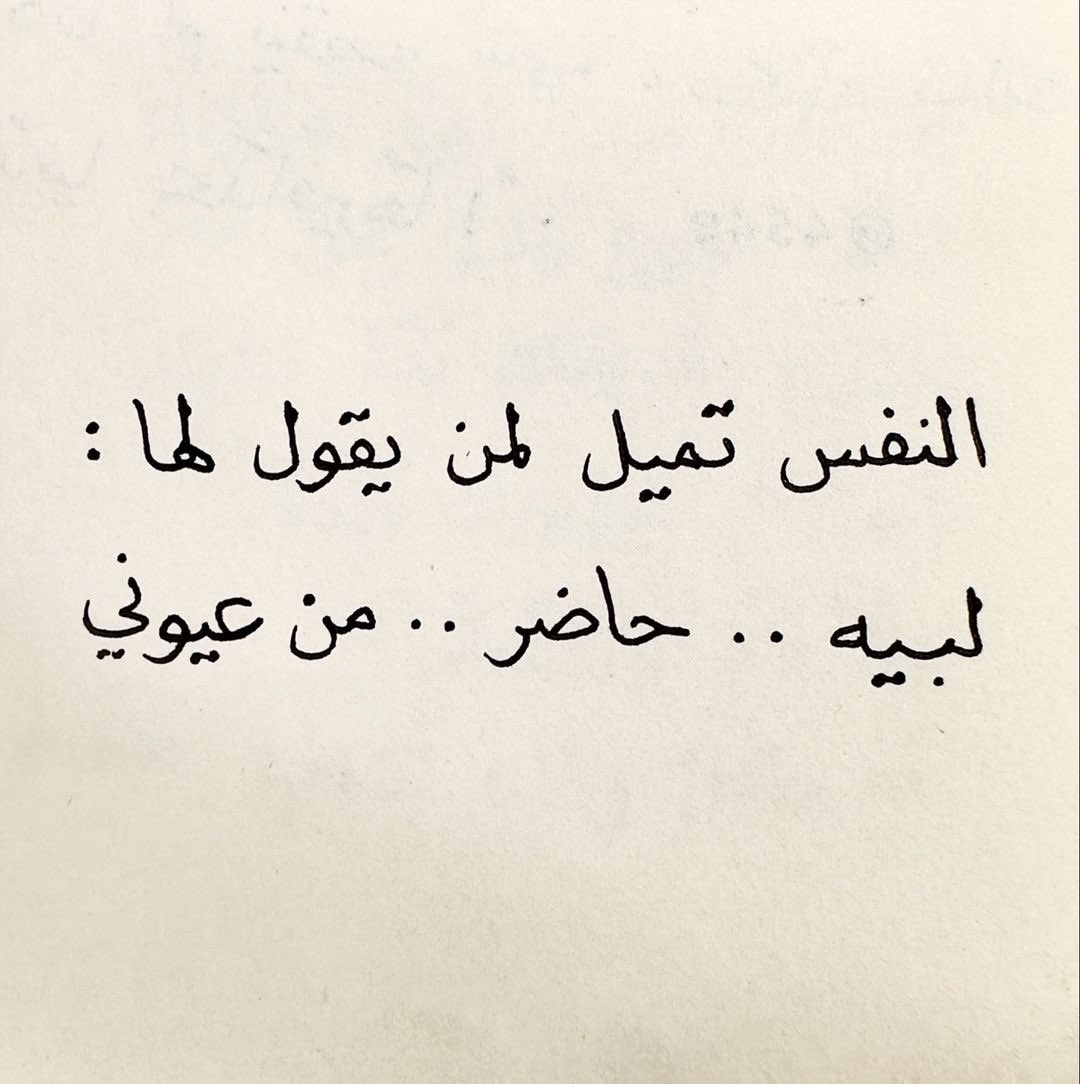 النفس تميل لمن يقول لها :
لبيه .. حاضر .. من عيوني